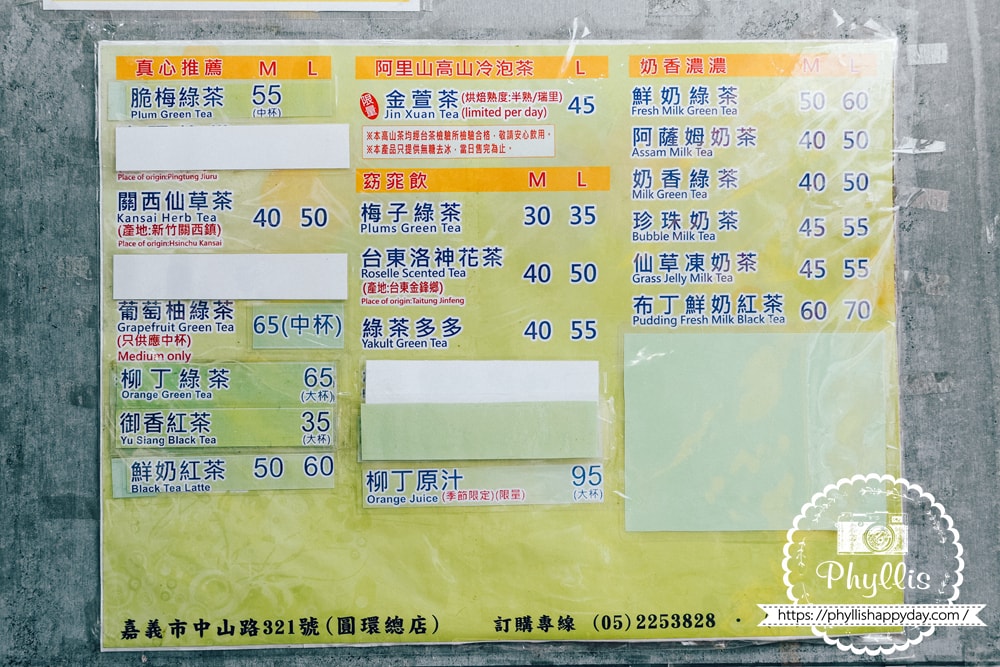 真心推薦 M L
脆梅綠茶 55
Plum Green Tea (中杯)
Place of origin:Pingtung Jiuru
關西仙草茶 40 50
Kansai Herb Tea
(產地:新竹關西鎮)
Place of origin:Hsinchu Kansai
葡萄柚綠茶 65(中杯)
Grapefruit Green Tea
(只供應中杯)
Medium only
柳丁綠茶 65
Orange Green Tea (大杯)
御香紅茶 35
Yu Siang Black Tea (大杯)
鮮奶紅茶 50 60
Black Tea Latte
阿里山高山冷泡茶 L
限量 金萱茶(烘焙熟度:半熟/瑞里) 45
Jin Xuan Tea (limited per day)
※本高山茶均經台茶檢驗所檢驗合格，敬請安心飲用。
※本產品只提供無糖去冰，當日售完為止。
窈窕飲 M L
梅子綠茶 30 35
Plums Green Tea
台東洛神花茶 40 50
Roselle Scented Tea
(產地:台東金鋒鄉)
Place of origin:Taitung Jinfeng
綠茶多多 40 55
Yakult Green Tea
柳丁原汁 95
Orange Juice (季節限定)(限量) (大杯)
奶香濃濃 M L
鮮奶綠茶 50 60
Fresh Milk Green Tea
阿薩姆奶茶 40 50
Assam Milk Tea
奶香綠茶 40 50
Milk Green Tea
珍珠奶茶 45 55
Bubble Milk Tea
仙草凍奶茶 45 55
Grass Jelly Milk Tea
布丁鮮奶紅茶 60 70
Pudding Fresh Milk Black Tea
嘉義市中山路321號(圓環總店) 訂購專線 (05)2253828 ·
Phyllis
https://phyllishappyday.com/